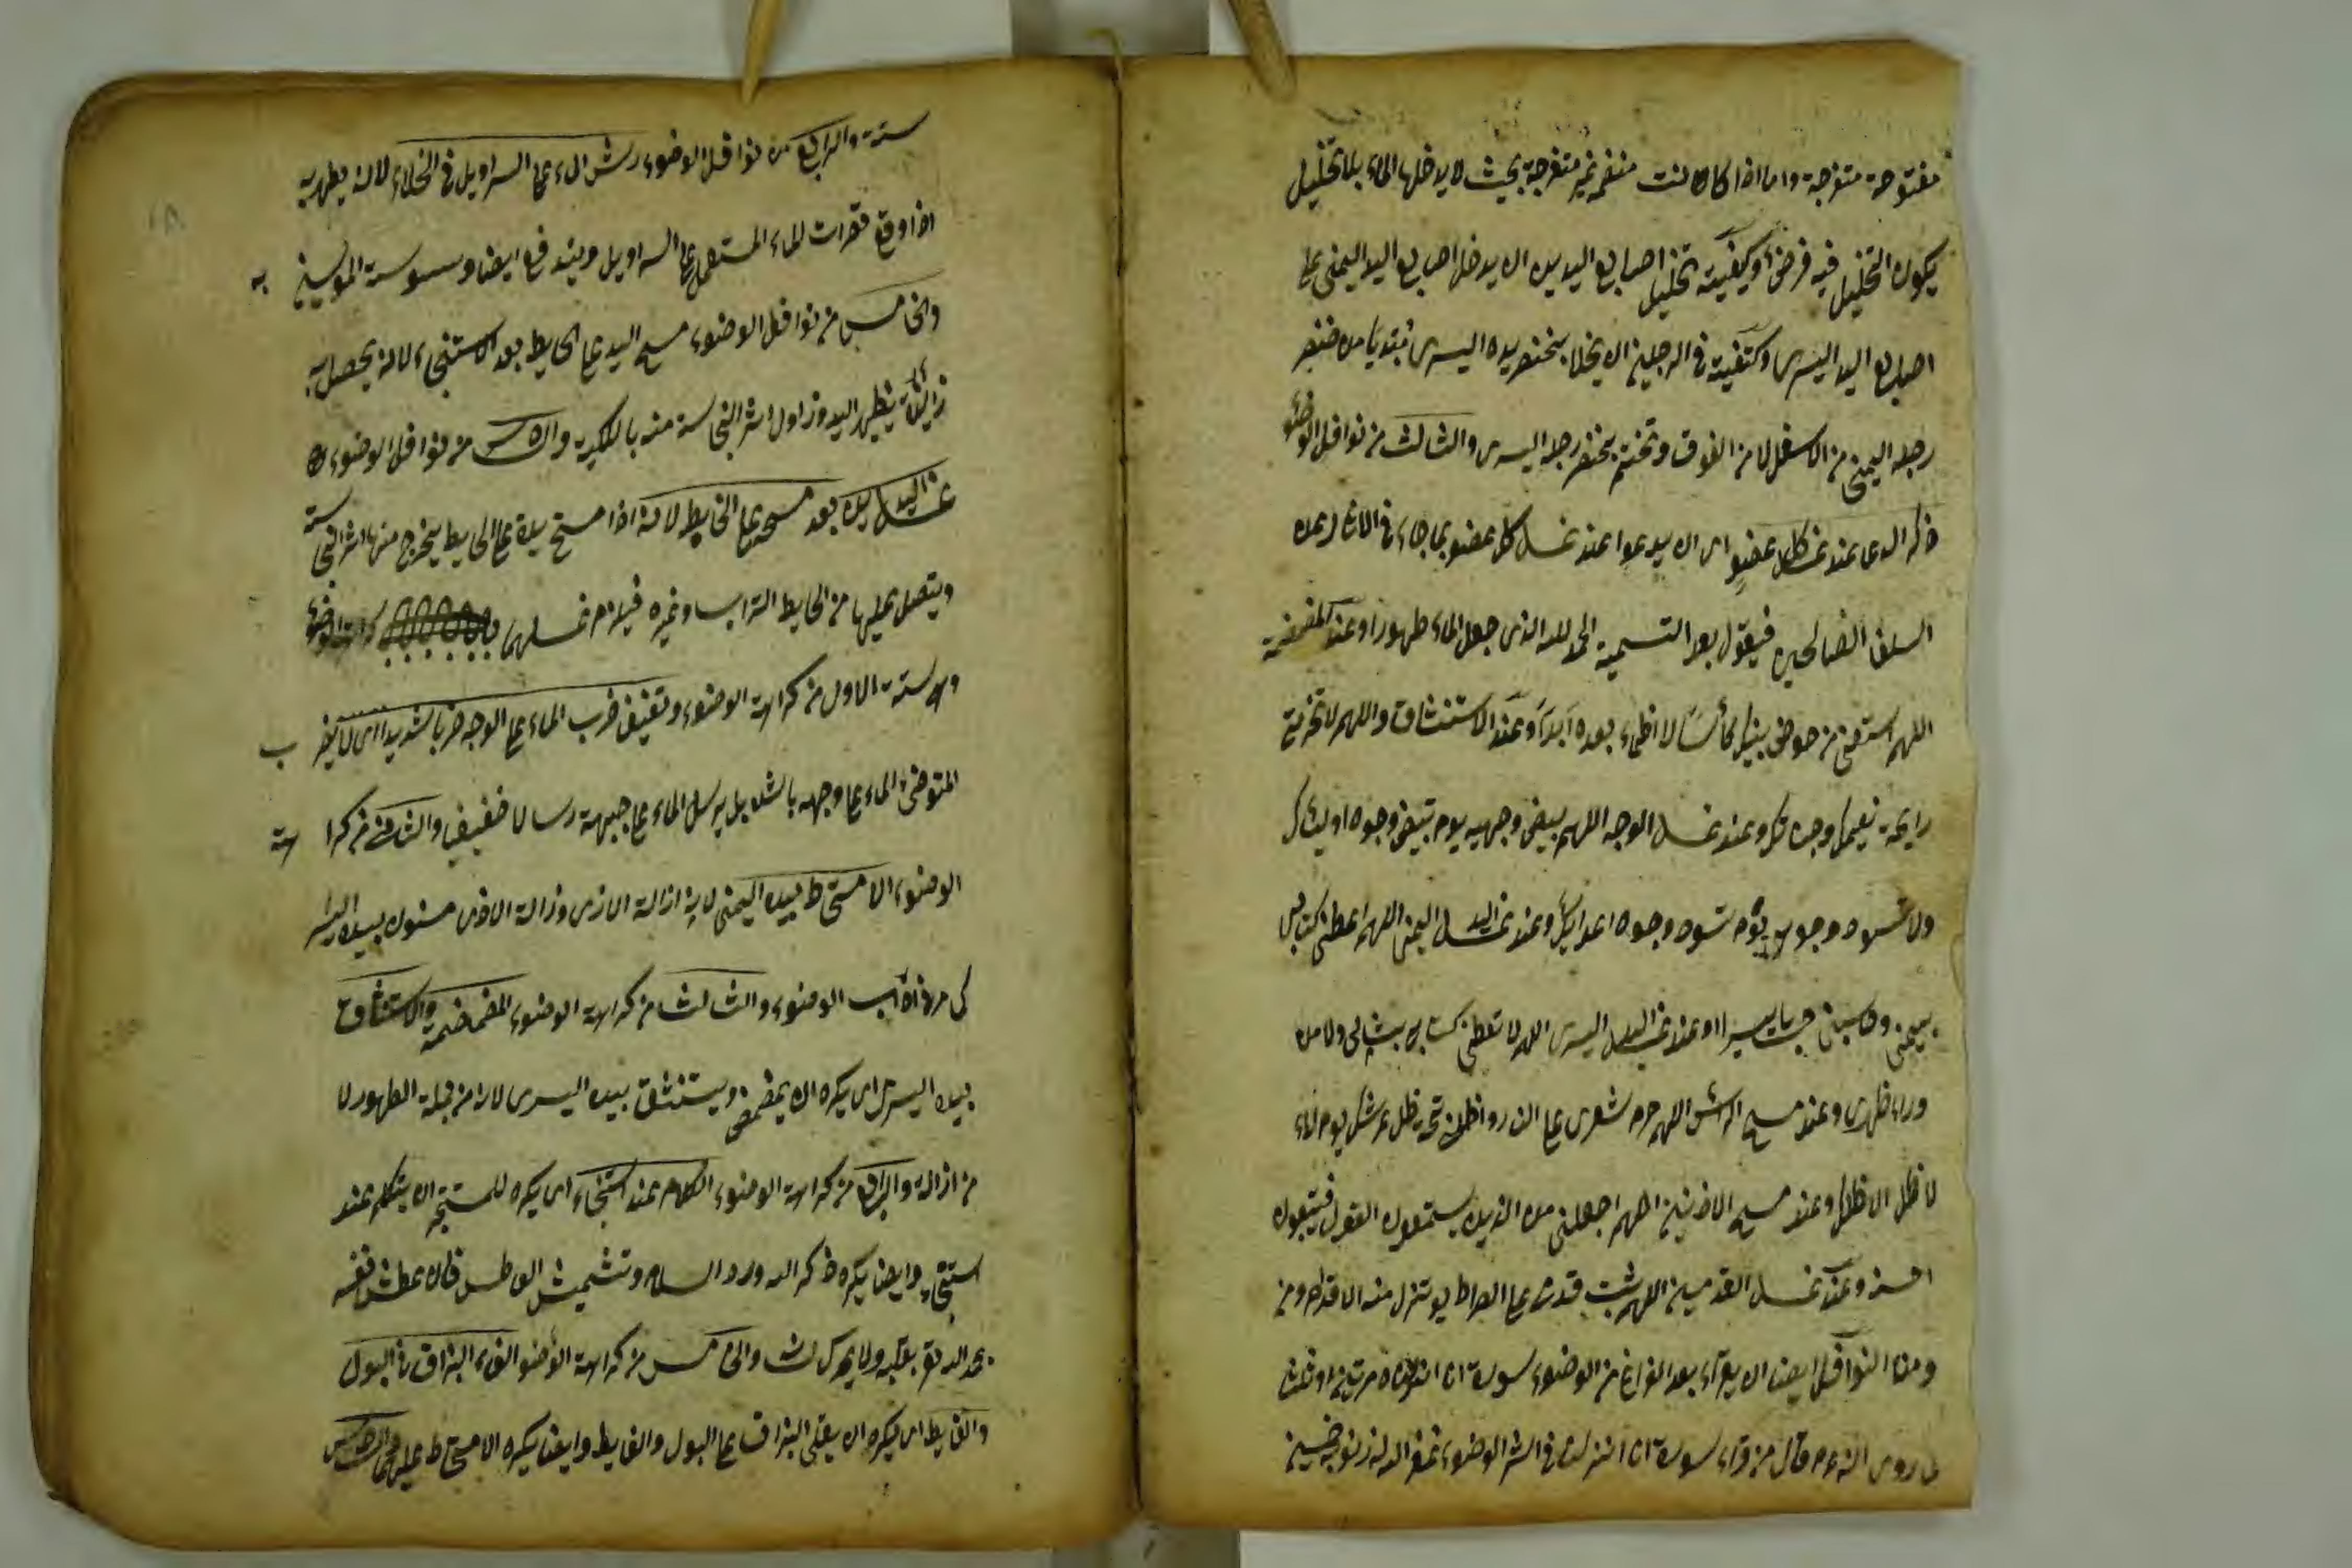 مفتوحة متفرجة واما اذا كان كانت منضم غير متفرجة بحيث لا يدخلها الماء بلا تخليل
يكون التخليل فيه فرضا وكيفية تخليل اصابع اليدين ان يدخل اصابع اليد اليمنى على
اصابع اليد اليسرى وكيفيته في الرجلين ان يخلل بخنصر يده اليسرى مبتديا من خنصر
رجله اليمنى من الاسفل لا من الفوق وتختم بخنصر رجله اليسرى والثالث من نوافل الوضوء
ذكر الدعاء عند غسل كل عضو اى ان يدعوا عند غسل كل عضو بما جاء في الاثار عن
السلف الصالحين فيقول بعد التسمية الحمد لله الذى جعل الماء طهورا وعند المضمضة
اللهم اسقنى من حوض نبيك كأسا لا اظماء بعده ابدا وعند الاستنشاق واللهم لا تحرمنى
رايحة نعيمك وجناتك وعند غسل الوجه اللهم بيض وجهى يوم تبيض وجوه اوليائك
ولا تسود وجوهى يوم تسود وجوه اعدائك وعند غسل اليد اليمنى اللهم اعطنى كتابى
بيمينى وحاسبنى حسابا يسيرا وعند غسل اليد اليسرى اللهم لا تعطنى كتابى بشمالى ولا من
وراء ظهرى وعند مسح الرأس اللهم حرم شعرى على النار واظلنى تحت ظل عرشك يوم
لا ظل الا ظلك وعند مسح الاذنين اللهم اجعلنى من الذين يستمعون القول فيتبعون
احسنه وعند غسل القدمين اللهم ثبت قدمى على الصراط يوم تنزل منه الاقدام ومن
ومن النوافل ايضا ان يقرأ بعد الفراغ من الوضوء سورة انا انزلناه مرتين او ثلثا
روى ان النبى عم قال من قراء سورة انا انزلناه في اثر الوضوء غفر الله له ذنوب خمسين
سنة والرابع من نوافل الوضوء رش الماء على السراويل في الخلاء لانه يطهر به
اذا وقع قطرات الماء المستعمل على السراويل ويندفع ايضا وسوسة الموسوسين به
والخامس من نوافل الوضوء مسح اليد على الحايط بعد الاستنجاء لانه يحصل به
زيادة تطهير اليد وزاول اثر النجاسة منه بالكلية والسادس من نوافل الوضوء
غسل اليد يده بعد مسحه على الحايط لانه اذا مسح يده على الحايط يخرج منها اثر النجاسة
ويتصل عليها من الحايط التراب وغيره فيلزم غسلهما كراهة الوضوء
وهى ستة الاول من كراهة الوضوء وتعنيف ضرب الماء على الوجه ضربا شديدا اى لا يضرب
المتوضئ الماء على وجهه بالشد بل يرسل الماء على جبهة رسالا خفيفا والثانى من كراهة
الوضوء الامتخاط بيده اليمنى لانه ازالة الاذى وزالة الاذى مسنون بيده اليسرى
كما مر في آداب الوضوء والثالث من كراهة الوضوء المضمضة والاستنشاق
بيده اليسرى اى يكره ان يمضمض ويستنشق بيده اليسرى لانه من جملة الطهور لا
من ازالة والرابع من كراهة الوضوء الكلام عند استنجاء اى يكره للمستنجى ان يتكلم عند
استنجاء وايضا يكره ذكر الله ورد السلام وتشميت العاطس فان عطس نفسه
يحمد الله تع بقلبه ولا يحرك لسانه والخامس من كراهة الوضوء القاء البزاق في البول
والغايط اى يكره ان يلقى البزاق على البول والغايط وايضا يكره الامتخاط عليهما والسادس